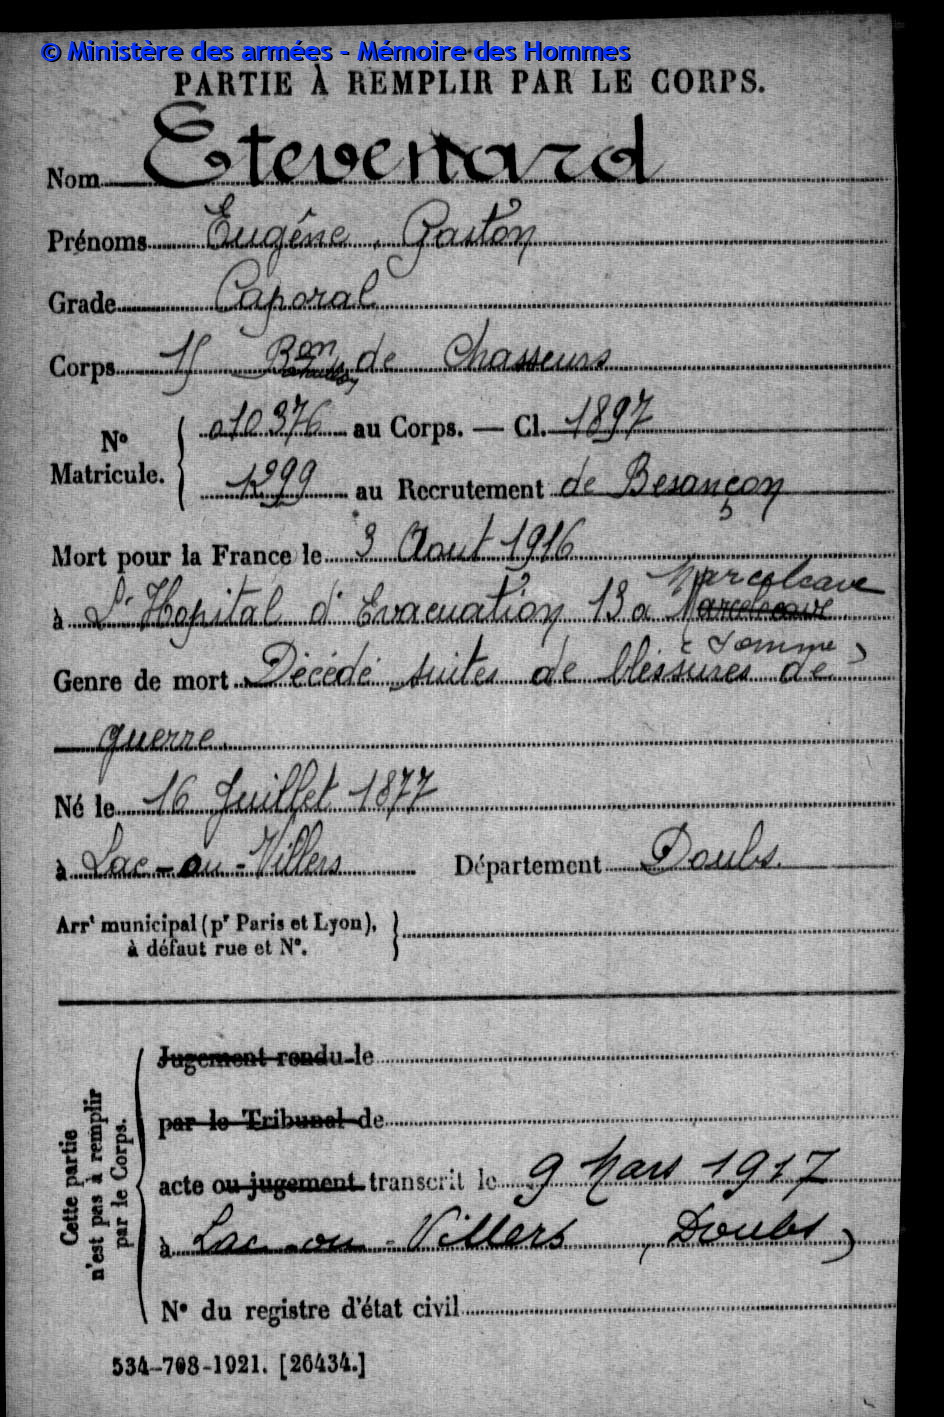 © Ministère des armées - Mémoire des Hommes
PARTIE À REMPLIR PAR LE CORPS.
Nom Etevenard
Prénoms Eugêne, Gaston
Grade Caporal
Corps 15 Bon de Chasseurs
No Matricule. { 010376 au Corps. — Cl. 1897
1299 au Recrutement de Besançon
Mort pour la France le 3 Aout 1916
Marcelcave
à L'Hopital d'Evacuation 13 a Marcelcave
( Somme )
Genre de mort Décédé suites de bléssures de
guerre.
Né le 16 Juillet 1877
à Lac-ou-Villers Département Doubs.
Arrt municipal (pr Paris et Lyon),
à défaut rue et No.
Cette partie
n'est pas à remplir
par le Corps.
Jugement rendu le
par le Tribunal de
acte ou jugement transcrit le 9 Mars 1917
à Lac-ou-Villers (Doubs)
No du registre d'état civil
534-708-1921. [26434.]